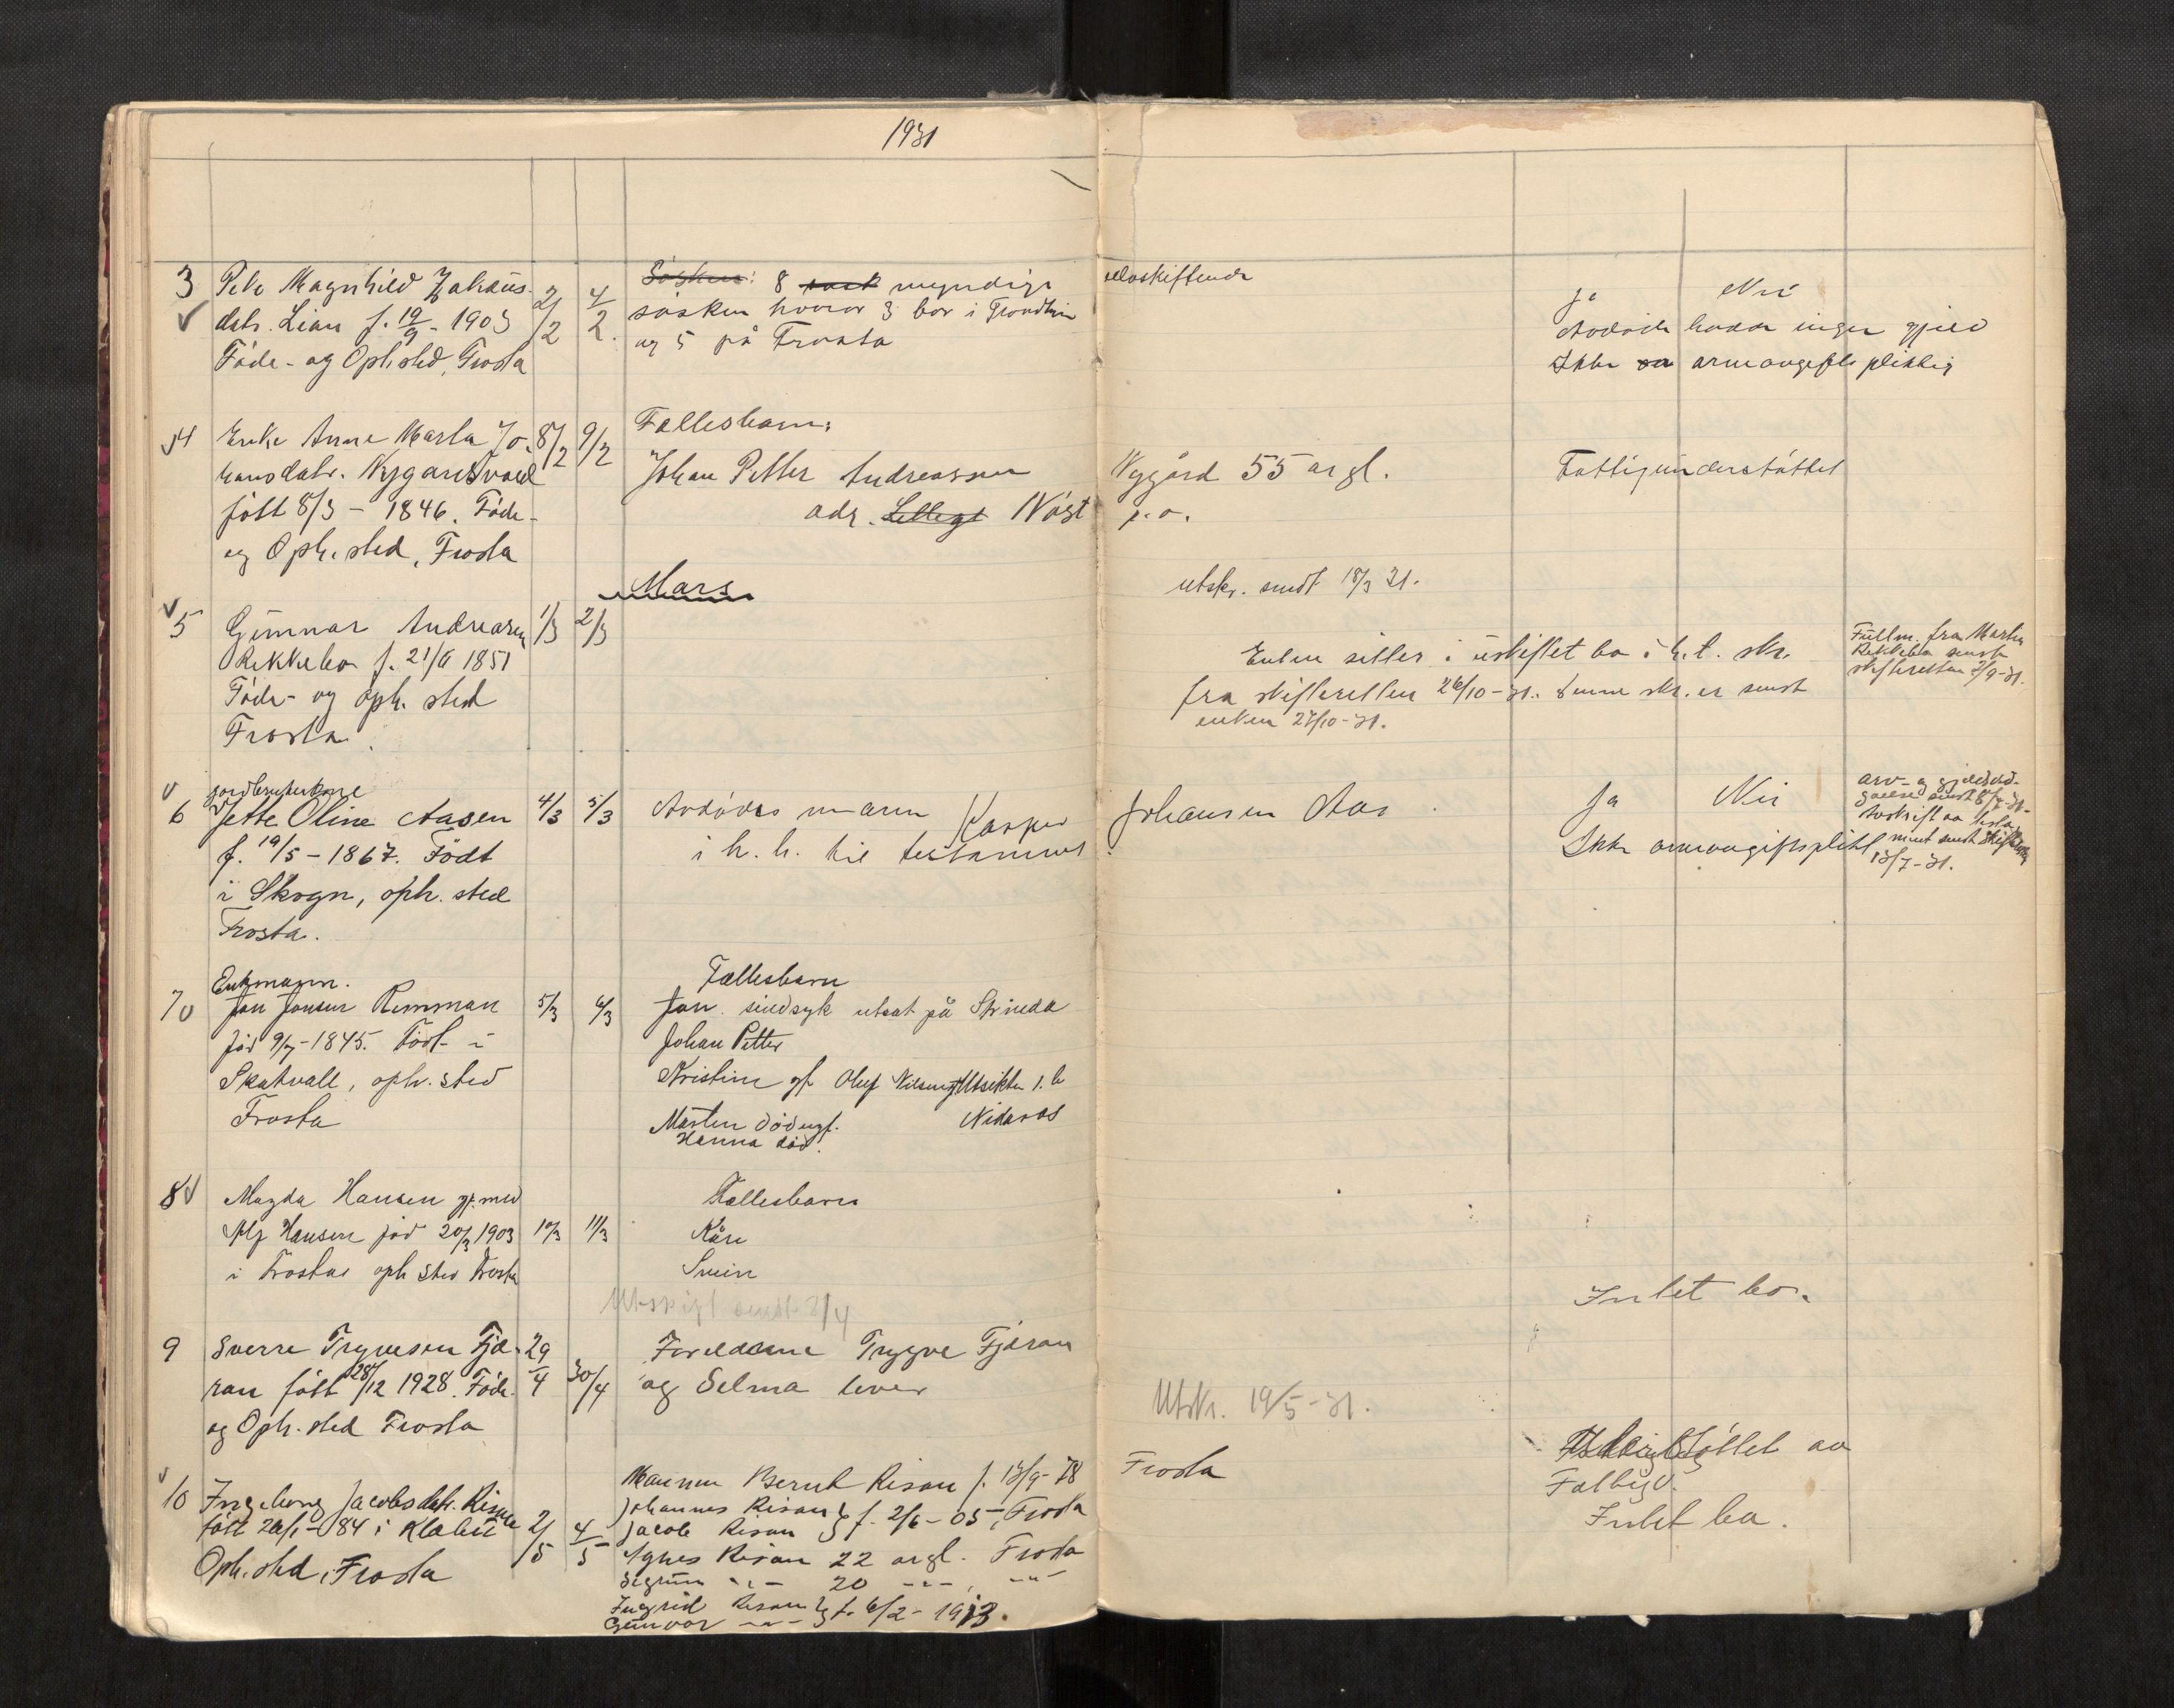 1931
3 Magnhild Johans-
datr. Lian f. 19/9 - 1903
Føde- og Oph. sted, Frosta
2/2 4/2
Søsken: 8 myndige
søsken hvorav 3 bor i Trondhim
og 5 på Frosta
selvskiftende
Ja Nei
Avdøde hadde ingen gjeld
Ikke arveavgifts pliktig
4 Enke Anne Marta Jo-
hansdatr. Nygardsvold
født 8/3 - 1846. Føde-
og Oph. sted, Frosta
8/2 9/2
Fællesbarn:
Johan Petter Andreassen
adr. Nøst
Nygård 55 år gl.
p.o.
Fattigunderstøttet
Mars
utskr. sendt 18/3 31.
5 Gunnar Andreasen
Rekkebo f. 21/6 1851
Føde- og oph. sted
Frosta.
1/3 2/3
Enken sitter i uskiftet bo i h.t. skr.
fra skifteretten 26/10-31. Denne skr. er sendt
enken 27/10-31.
Fullm. fra Marta
Rekkebo sendt
skifteretten 2/9-31.
jordbrukerkone
6 Jette Oline Aasen
f. 19/5 - 1867. Født
i Skogn, oph. sted
Frosta.
4/3 5/3
Avdødes mann Kasper
i h. h. til testament
Johansen Aas
Ja Nei
Ikke arveavgiftsplikt
arv- og gjeldsed-
sendt 8/7-31.
Avskrift av testa
ment sendt skifteretten
13/7-31.
Enkmann.
7 Jon Jonsen Remman
fød 9/7-1845. Født i
Skatvall, oph. sted
Frosta
5/3 6/3
Fællesbarn
Jon sindsyk utsat på Strinda
Johan Petter
Kristine gf Oluf Nilsen, Utsikten 1. b
Nidaros
Marten død ugf.
Hanna død.
8 Magda Hansen gf. med
Alf Hansen fød 20/3 1903
i Frosta oph sted Frosta
10/3 11/3
Fællesbarn
Kåre
Svein
Intet bo.
Utskrift sendt 8/4
9 Sverre Trygvesen Fjæ-
ran født 28/12 1928. Føde-
og Oph. sted Frosta
29/4 30/4
Foreldrene Trygve Fjæran
og Selma lever
Utskr. 19/5-31.
10 Ingeborg Jacobsdatr. Risan
født 26/1-84 i Klæbu
Oph. sted, Frosta
2/5 4/5
Mannen Bernt Risan f. 13/9-78
Frosta
Johannes Risan } f. 2/6-05, Frosta
Jacob Risan
Agnes Risan 22 år gl. Frosta
Sigrun -"- 20 -"-, -"-
Ingrid Risan } f. 6/2-1913.
Gunvor -"-
støttet av
Fatbgv.
Intet bo.